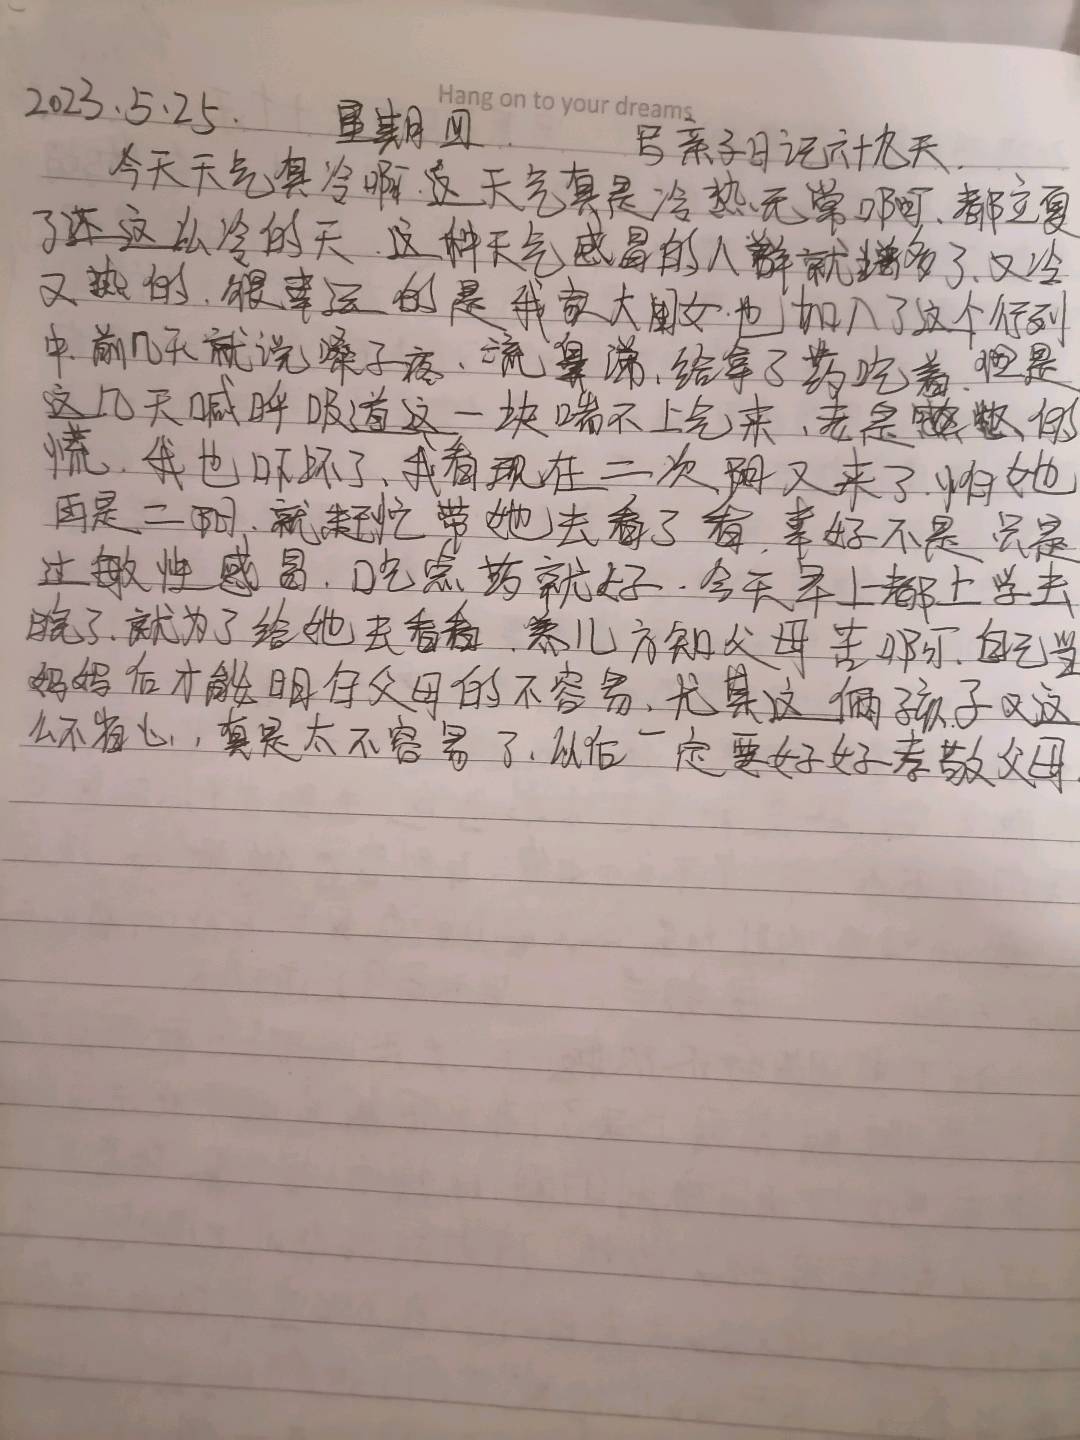 Hang on to your dreams
2023.5.25. 星期四. 写亲子日记六十九天.
今天天气真冷啊.这天气真是冷热无常啊、都立夏
了还这么冷的天.这种天气感冒的人群就增多了.又冷
又热的.很幸运的是我家大闺女也加入了这个行列
中.前几天就说嗓子疼、流鼻涕、给拿了药吃着.但是
这几天喊呼吸道这一块喘不上气来、老是憋憋的
慌.我也吓坏了、我看现在二次阳又来了.怕她
再是二阳.就赶忙带她去看了看.幸好不是只是
过敏性感冒.吃点药就好.今天早上都上学去
晚了.就为了给她去看看.养儿方知父母苦啊.自己当
妈妈后才能明白父母的不容易、尤其这俩孩子又这
么不省心,真是太不容易了.以后一定要好好孝敬父母.